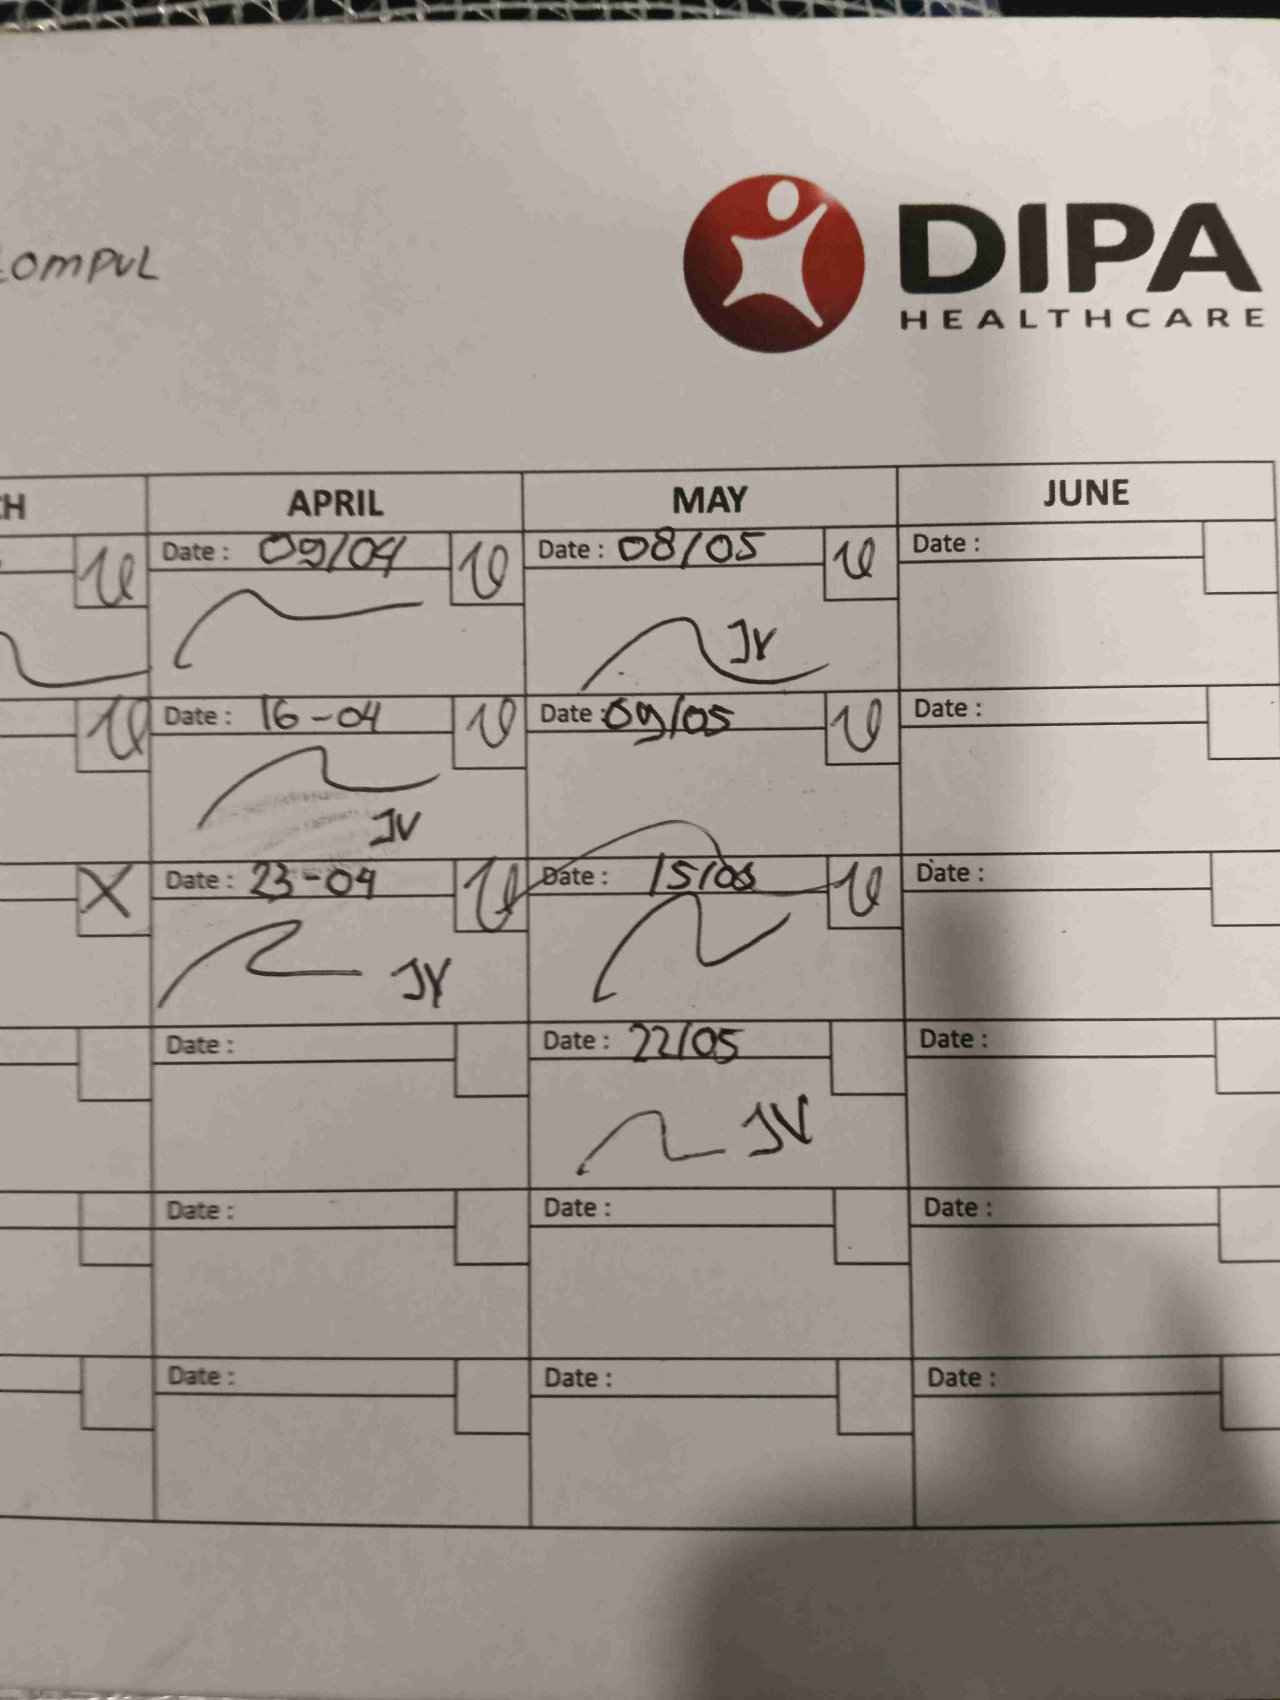 LOMPUL
DIPA
HEALTHCARE
CH APRIL MAY JUNE
Date : 09/04 Date : 08/05 Date :
JV
Date : 16-04 Date : 09/05 Date :
JV
X Date : 23-04 Date : 15/05 Date :
JV
Date : Date : 22/05 Date :
JV
Date : Date : Date :
Date : Date : Date :